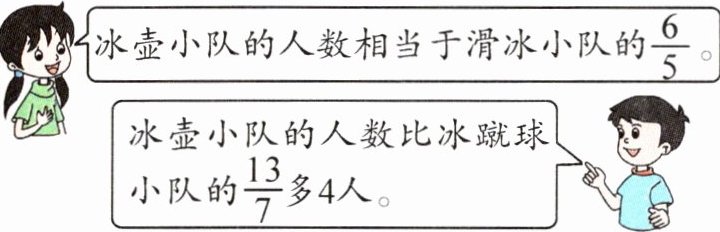 冰壶小队的人数相当于滑冰小队的6/5。
冰壶小队的人数比冰蹴球
小队的13/7多4人。